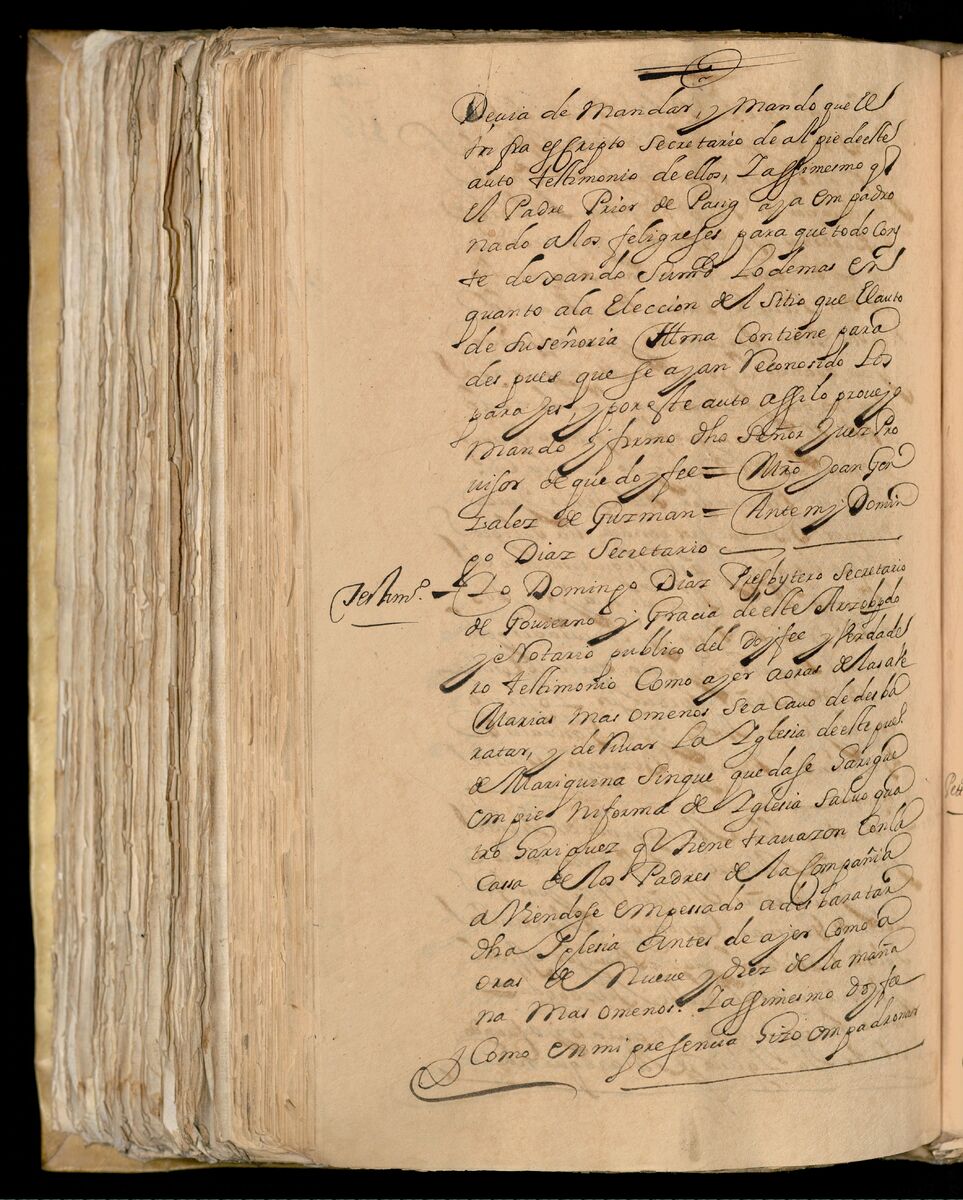 Devia de mandar, y mando que el
infra escripto secretario de al pie de este
auto testimonio de ellos, Y assimesmo q̃
el Padre Prior de Pasig aya empadro
nado a los feligreses para que todo cons
te dexando sumd. Lo demas en
quanto a la Eleccion del sitio que el auto
de su señoria Illma contiene para
des pues que se ayan Reconosido los
parajes, y por este auto assi lo proveyo
Mando y firmo dho Señor Juez Pro
uisor de que doy fee = Mrõ Joan Gon
zalez de Guzman = Ante my Domin
go Diaz Secretario
Testimo. Yo Domingo Diaz Presbytero secretario
de Gouierno y Gracia de este Arzobpdo
y Notario publico del doy fee y Verdade
ro testimonio Como ayer a oras de las abe
Marias mas o menos se a cauo de desba
ratar, y deriuar La Iglesia de este puel.
de Mariquina sin que quedase Harigue
em pie ni forma de Iglesia saluo qua
tro Hariguez q̃ tiene trauazon con la
Cassa de los Padres de la Compañia
a Viendose empessado a des baratar
dha Iglesia antes de ayer Como a
oras de Nueue y diez de la maña
na mas o menos. Y assimesmo doy fee
Como en mi presencia Hizo empadronar